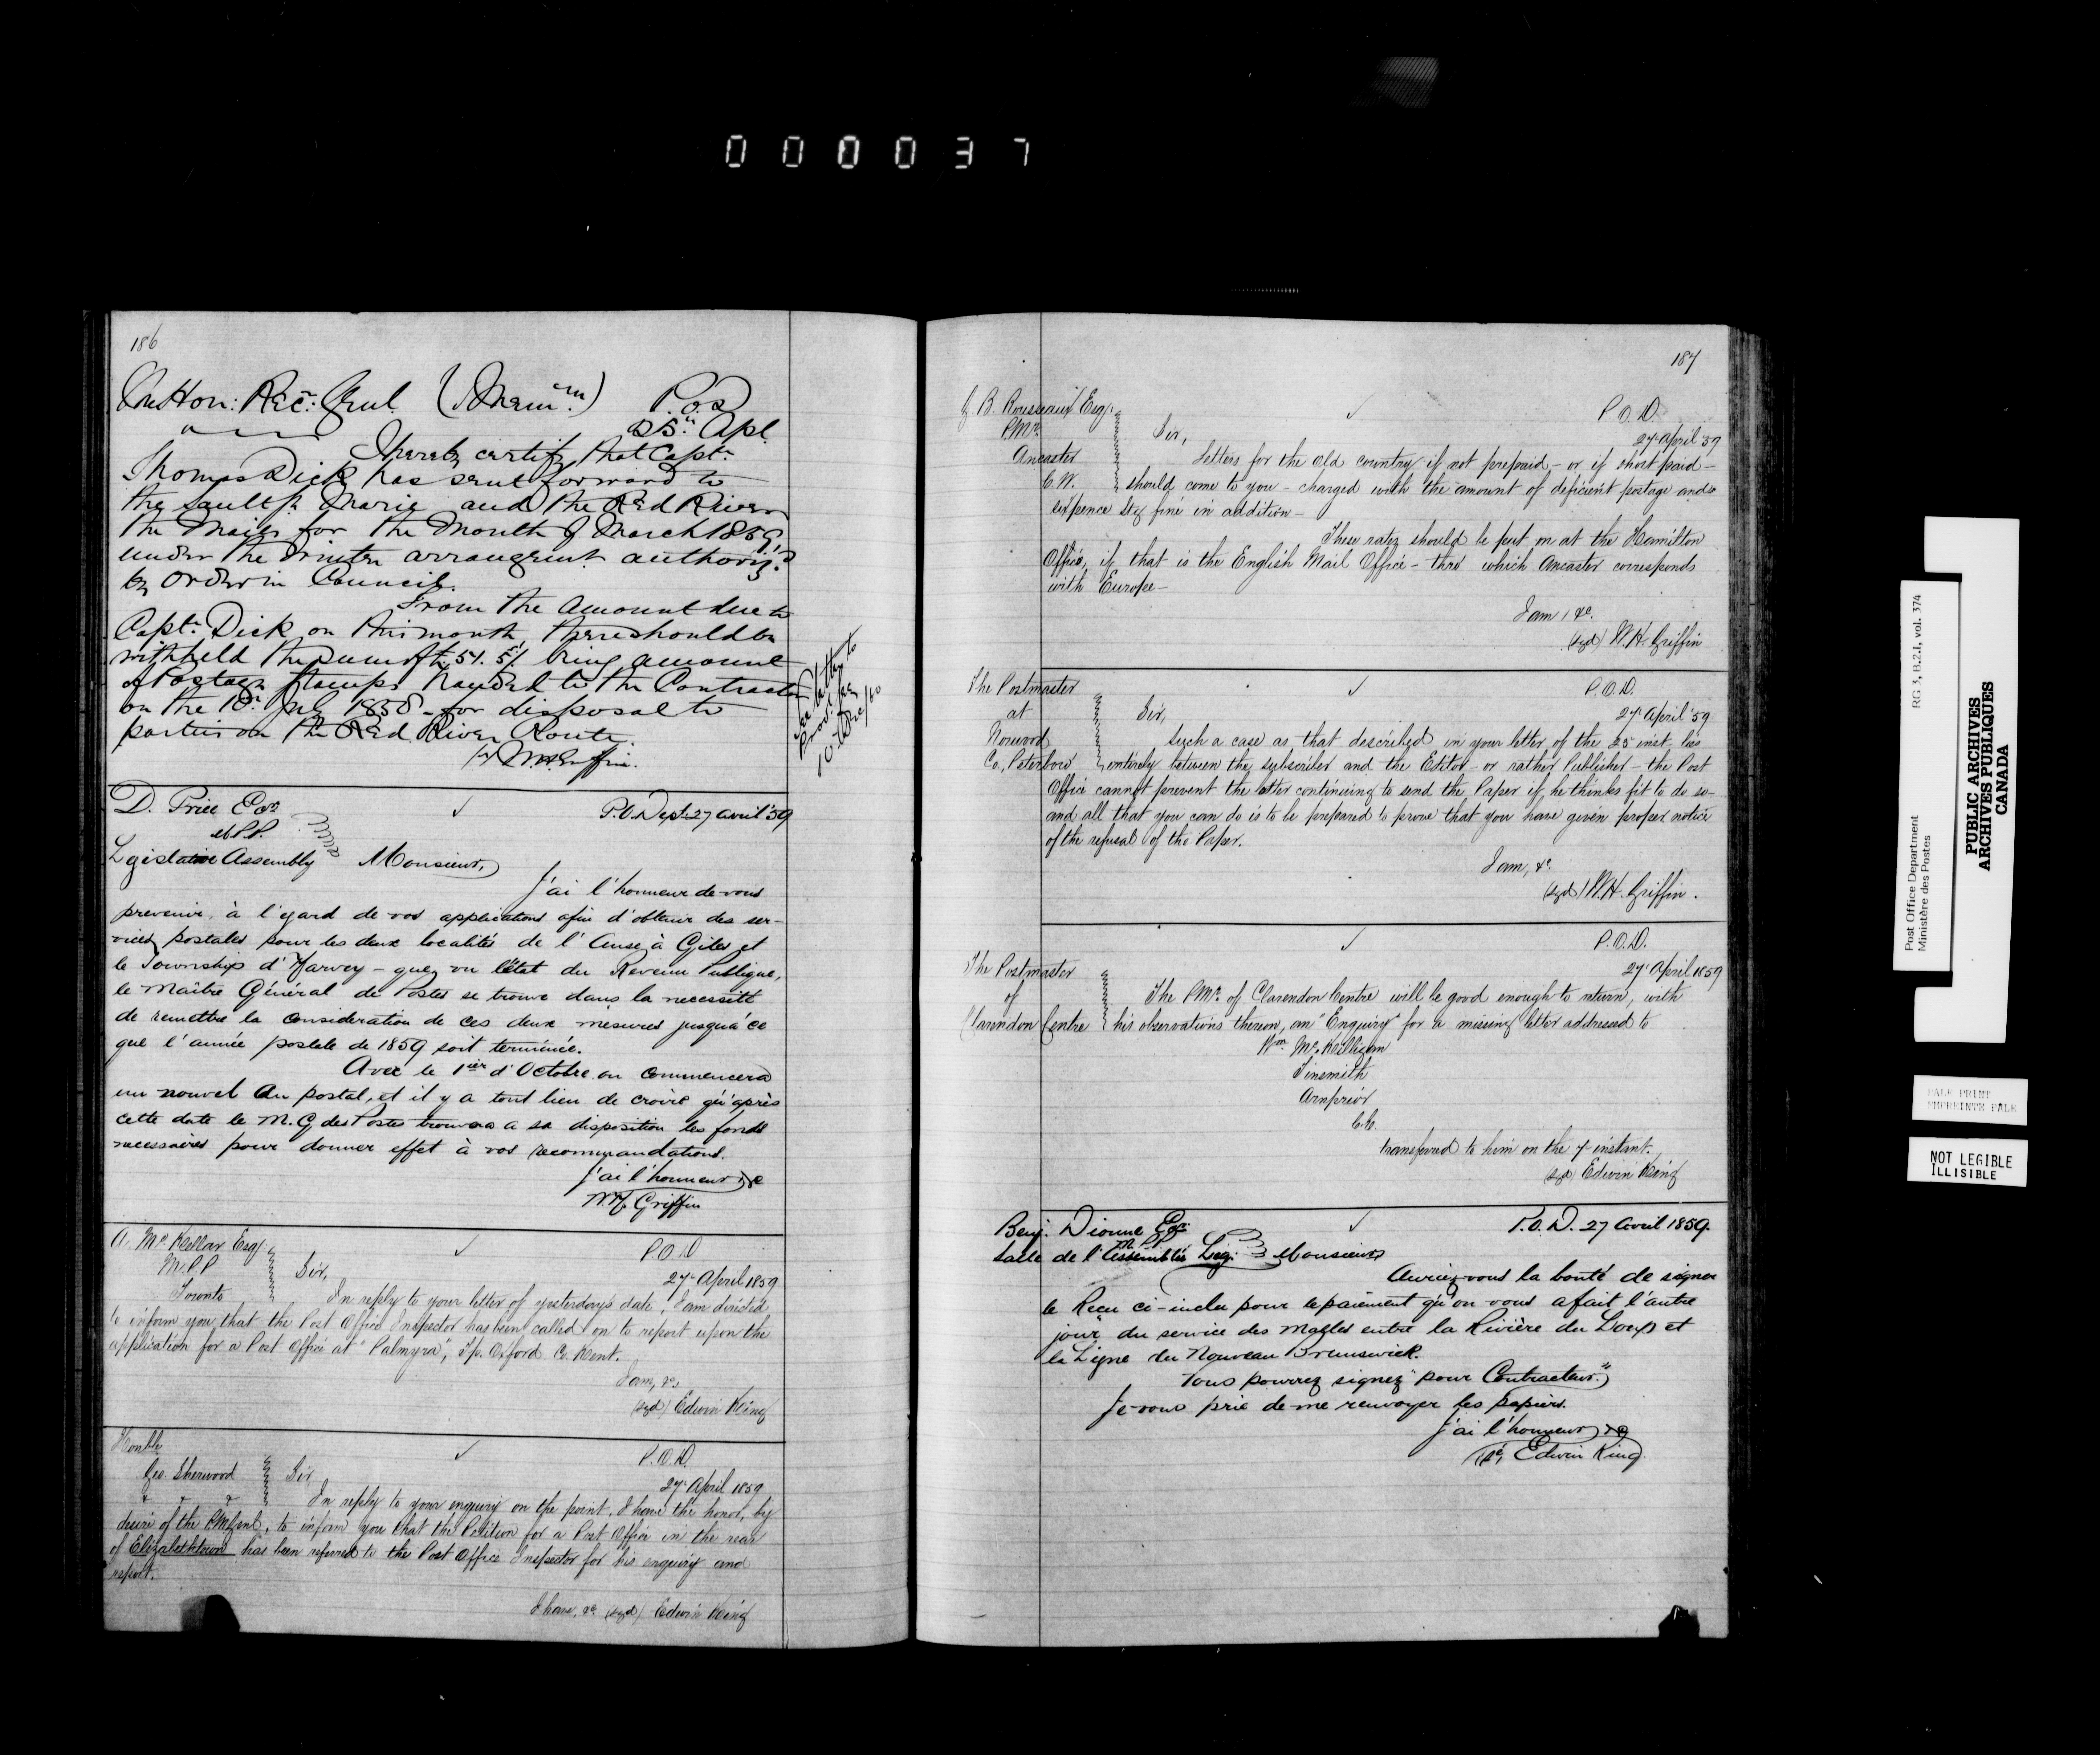 0 0 0 0 3 7
186
The Hon: Rec: Genl. (Mem.m) P.O.D
25th Apl.
I hereby certify that Capt.
Thomas Dick has sent forward to
the Sault Ste. Marie and the Red River
the Mails for the Month of March 1859,
under the Winter arrangent authorizd
by Order in Council.
From the Amount due to
Capt. Dick on this month, there should be
withheld the Sum of 51. 5/ being amount
of Postage Stamps handed to the Contractor
on the 18th July 1858 - for disposal to
parties on the Red River Route.
W.H. Griffin.
See letter to
10 Dec/60
D. Price Esqr. P.O. Dept. 27 avril '59
M.P.P.
Legislative Assembly Monsieur,
J'ai l'honneur de vous
prevenir, à l'egard de vos applications afin d'obtenir des ser-
vices postales pour les deux localités de l'Anse à Giles et
le Township d'Harvey - que, vu l'état du Revenu Publique,
le Maître Général de Postes se trouve dans la necessité
de remettre la consideration de ces deux mesures jusqu'à ce
que l'année postale de 1859 soit terminée.
Avec le 1ier d'Octobre on commencera
un nouvel An postal, et il y a tout lieu de croire qu'après
cette date le M.G des Postes trouvera a sa disposition les fonds
necessaires pour donner effet à vos recommandations.
J'ai l'honneur &c
W.H. Griffin
A. McKellar Esqr. P.O.D
M.P.P Sir, 27 April 1859
Toronto In reply to your letter of yesterday's date, I am directed
to inform you that the Post Office Inspector has been called on to report upon the
application for a Post Office at "Palmyra", Tp. Orford Co. Kent.
I am, &c
(sgd) Edwin King
Honble P.O.D.
Geo. Sherwood Sir 27 April 1859
In reply to your enquiry on the point, I have the honor, by
desire of the PMGenl, to inform you that the Petition for a Post Office in the rear
of Elizabethtown has been referred to the Post Office Inspector for his enquiry and
report.
I have, &c (sgd) Edwin King
187
J. B. Rousseaux Esqr. P.O.D.
PMr. Sir, 27 April 59
Ancaster Letters for the old country if not prepaid - or if short paid -
C.W. should come to you - charged with the amount of deficient postage and a
sixpence Stg fine in addition -
These rates should be put on at the Hamilton
Office, if that is the English Mail Office - thro' which Ancaster corresponds
with Europe -
I am, &c.
(sgd) W.H. Griffin
The Postmaster P.O.D.
at Sir, 27 April '59
Norwood Such a case as that described in your letter of the 25 inst. lies
Co. Peterboro' entirely between the subscriber and the Editor - or rather Publisher - the Post
Office cannot prevent the latter continuing to send the Paper if he thinks fit to do so -
and all that you can do is to be prepared to prove that you have given proper notice
of the refusal of the Paper.
I am, &c.
(sgd) W.H. Griffin.
P.O.D.
The Postmaster 27 April 1859
of The PMr. of Clarendon Centre will be good enough to return, with
Clarendon Centre his observations thereon, an "Enquiry" for a missing letter addressed to
Wm. McKilligan
Tinsmith
Arnprior
C.W.
transferred to him on the 7 instant.
(sgd) Edwin King
Benj. Dionne Esqr. P.O.D. 27 Avril 1859.
M.P.P.
Salle de l'Assemblée Leg: Monsieur
Auriez-vous la bonté de signer
le Recu ci-inclu pour le paiement qu'on vous a fait l'autre
jour, du service des Malles entre la Rivière du Loup et
la Ligne du Nouveau Brunswick.
Vous pourrez signez "pour Contracteur."
Je vous prie de me renvoyer les papiers.
J'ai l'honneur &c
Edwin King
Post Office Department
Ministère des Postes
RG 3, B.2.1, vol. 374
PUBLIC ARCHIVES
ARCHIVES PUBLIQUES
CANADA
PALE PRINT
EMPREINTE PALE
NOT LEGIBLE
ILLISIBLE